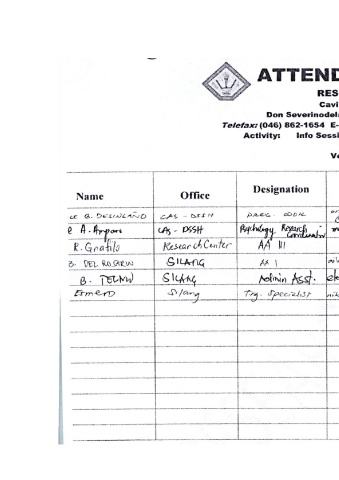 ATTEND
RES
Cavi
Don Severinodela
Telefax: (046) 862-1654 E-
Activity: Info Sessi
Ve
Name Office Designation
B. DESINGAÑO CAS - DSSH PROG. COOR.
A. Ampon CAS - DSSH Psychology Research Coordinator
R. Gratilo Research Center AA III
B. DEL ROSARIO SILANG AA I
B. SILANG Admin Asst. ele
Esmero Silang Trg. Specialist nik